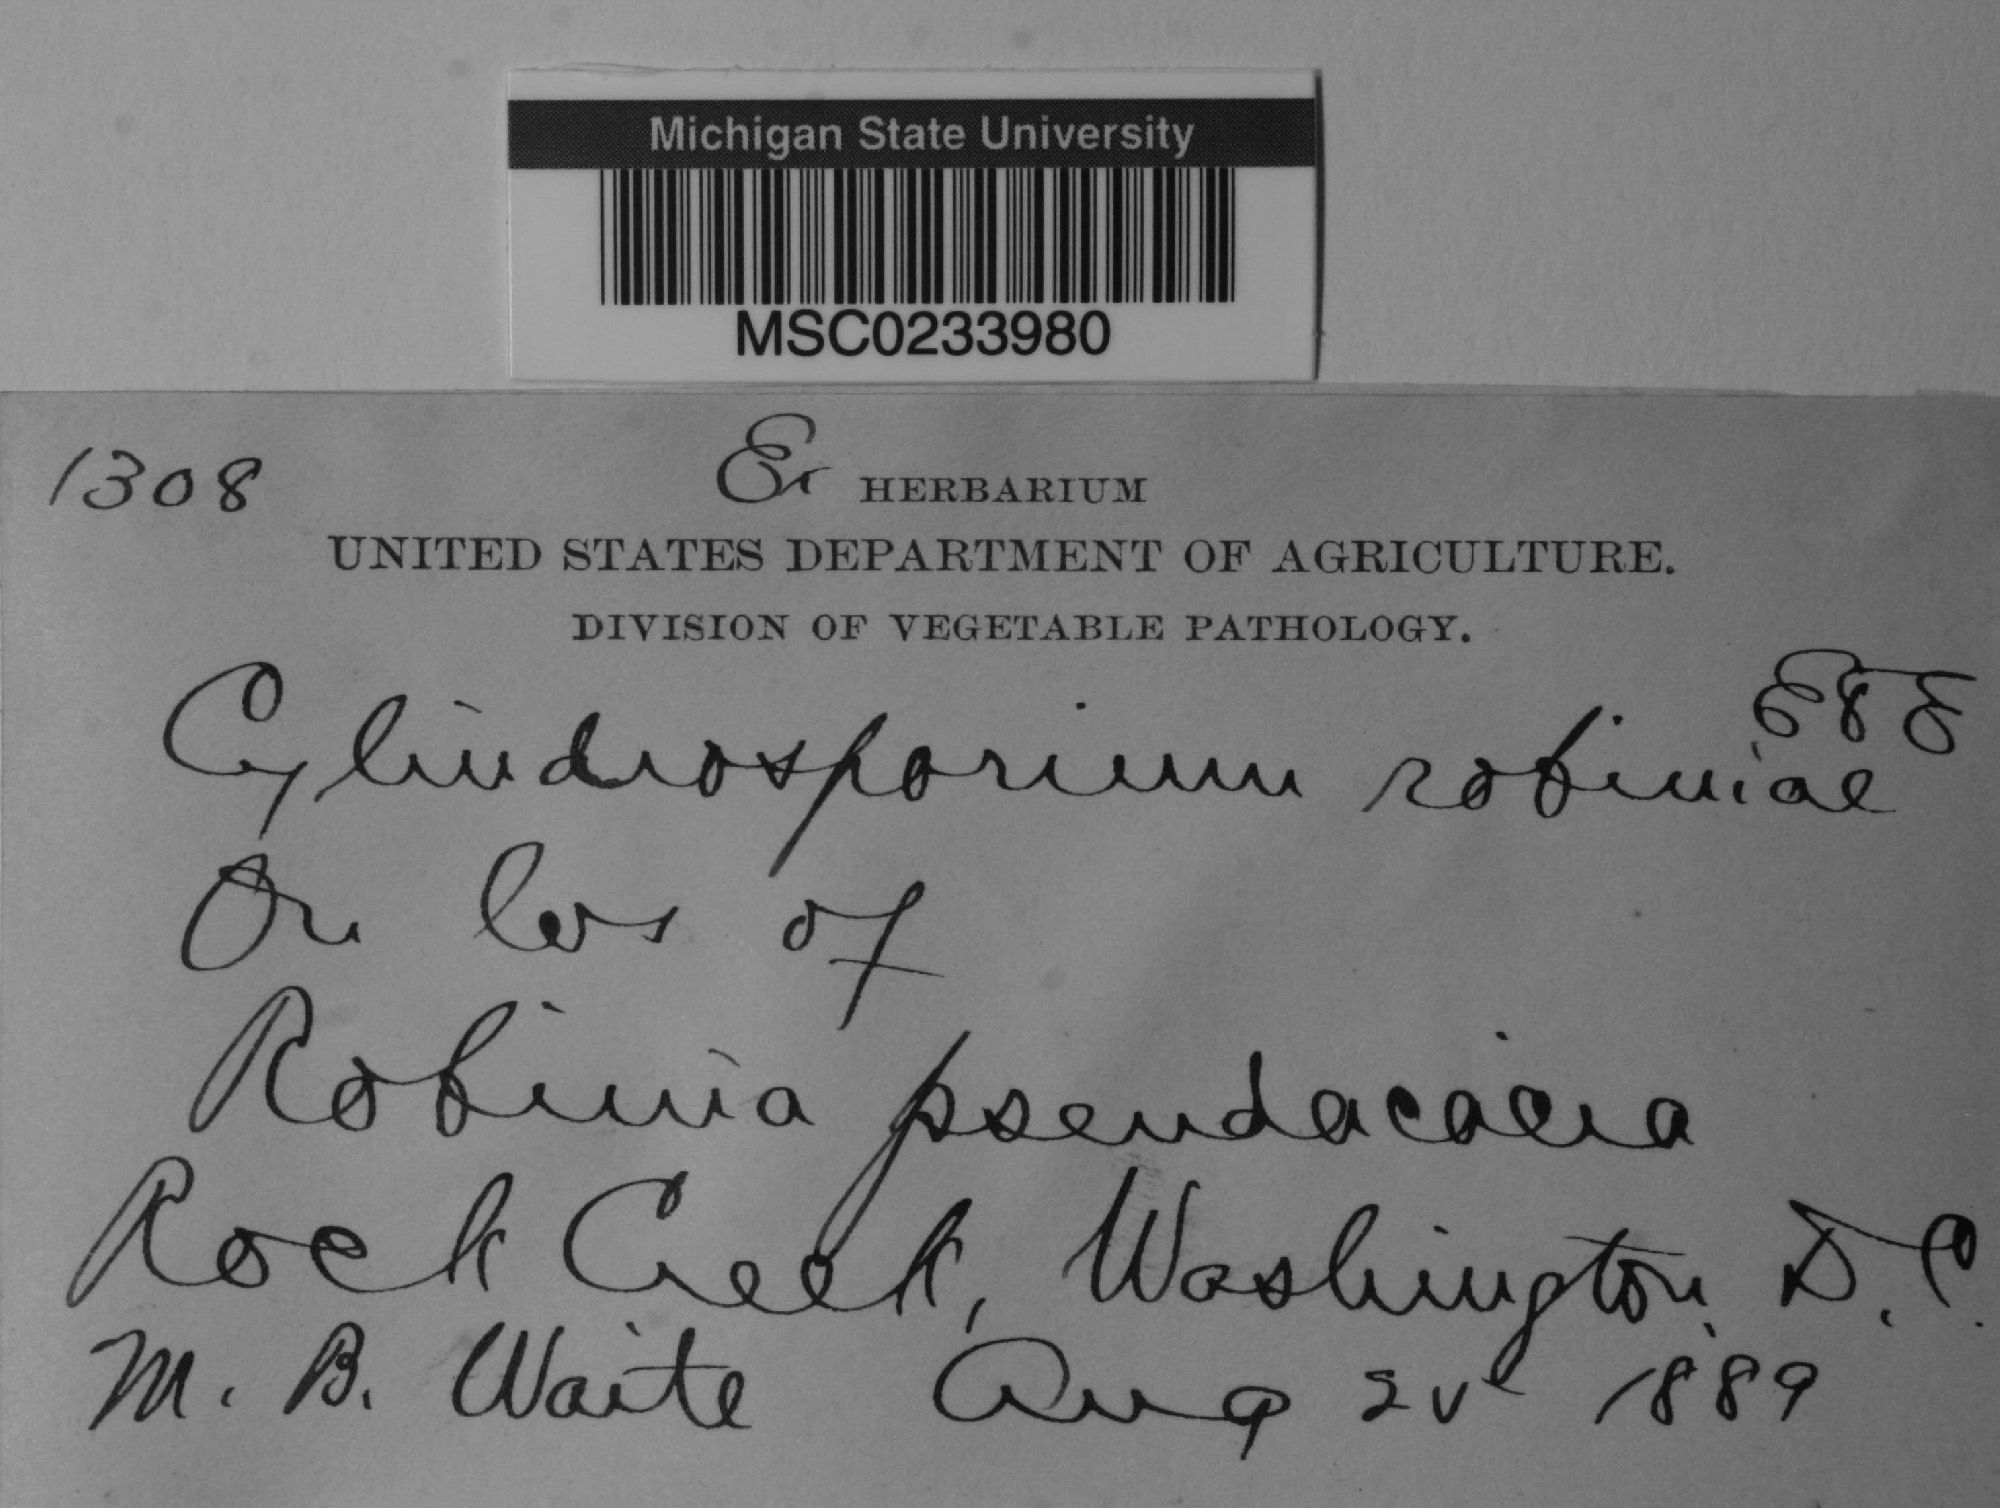 Michigan State University
MSC0233980
1308
Ex HERBARIUM
UNITED STATES DEPARTMENT OF AGRICULTURE.
DIVISION OF VEGETABLE PATHOLOGY.
Cylindrosporium robiniae E & E
On lvs of
Robinia pseudacacia
Rock Creek, Washington, D.C.
M. B. Waite Aug 1889